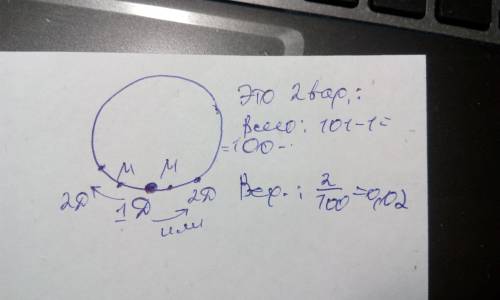 Это 2 вар.:
Всего: 101-1=
=100-
М М
2Д 1Д 2Д
или
Вер.: 2/100=0,02